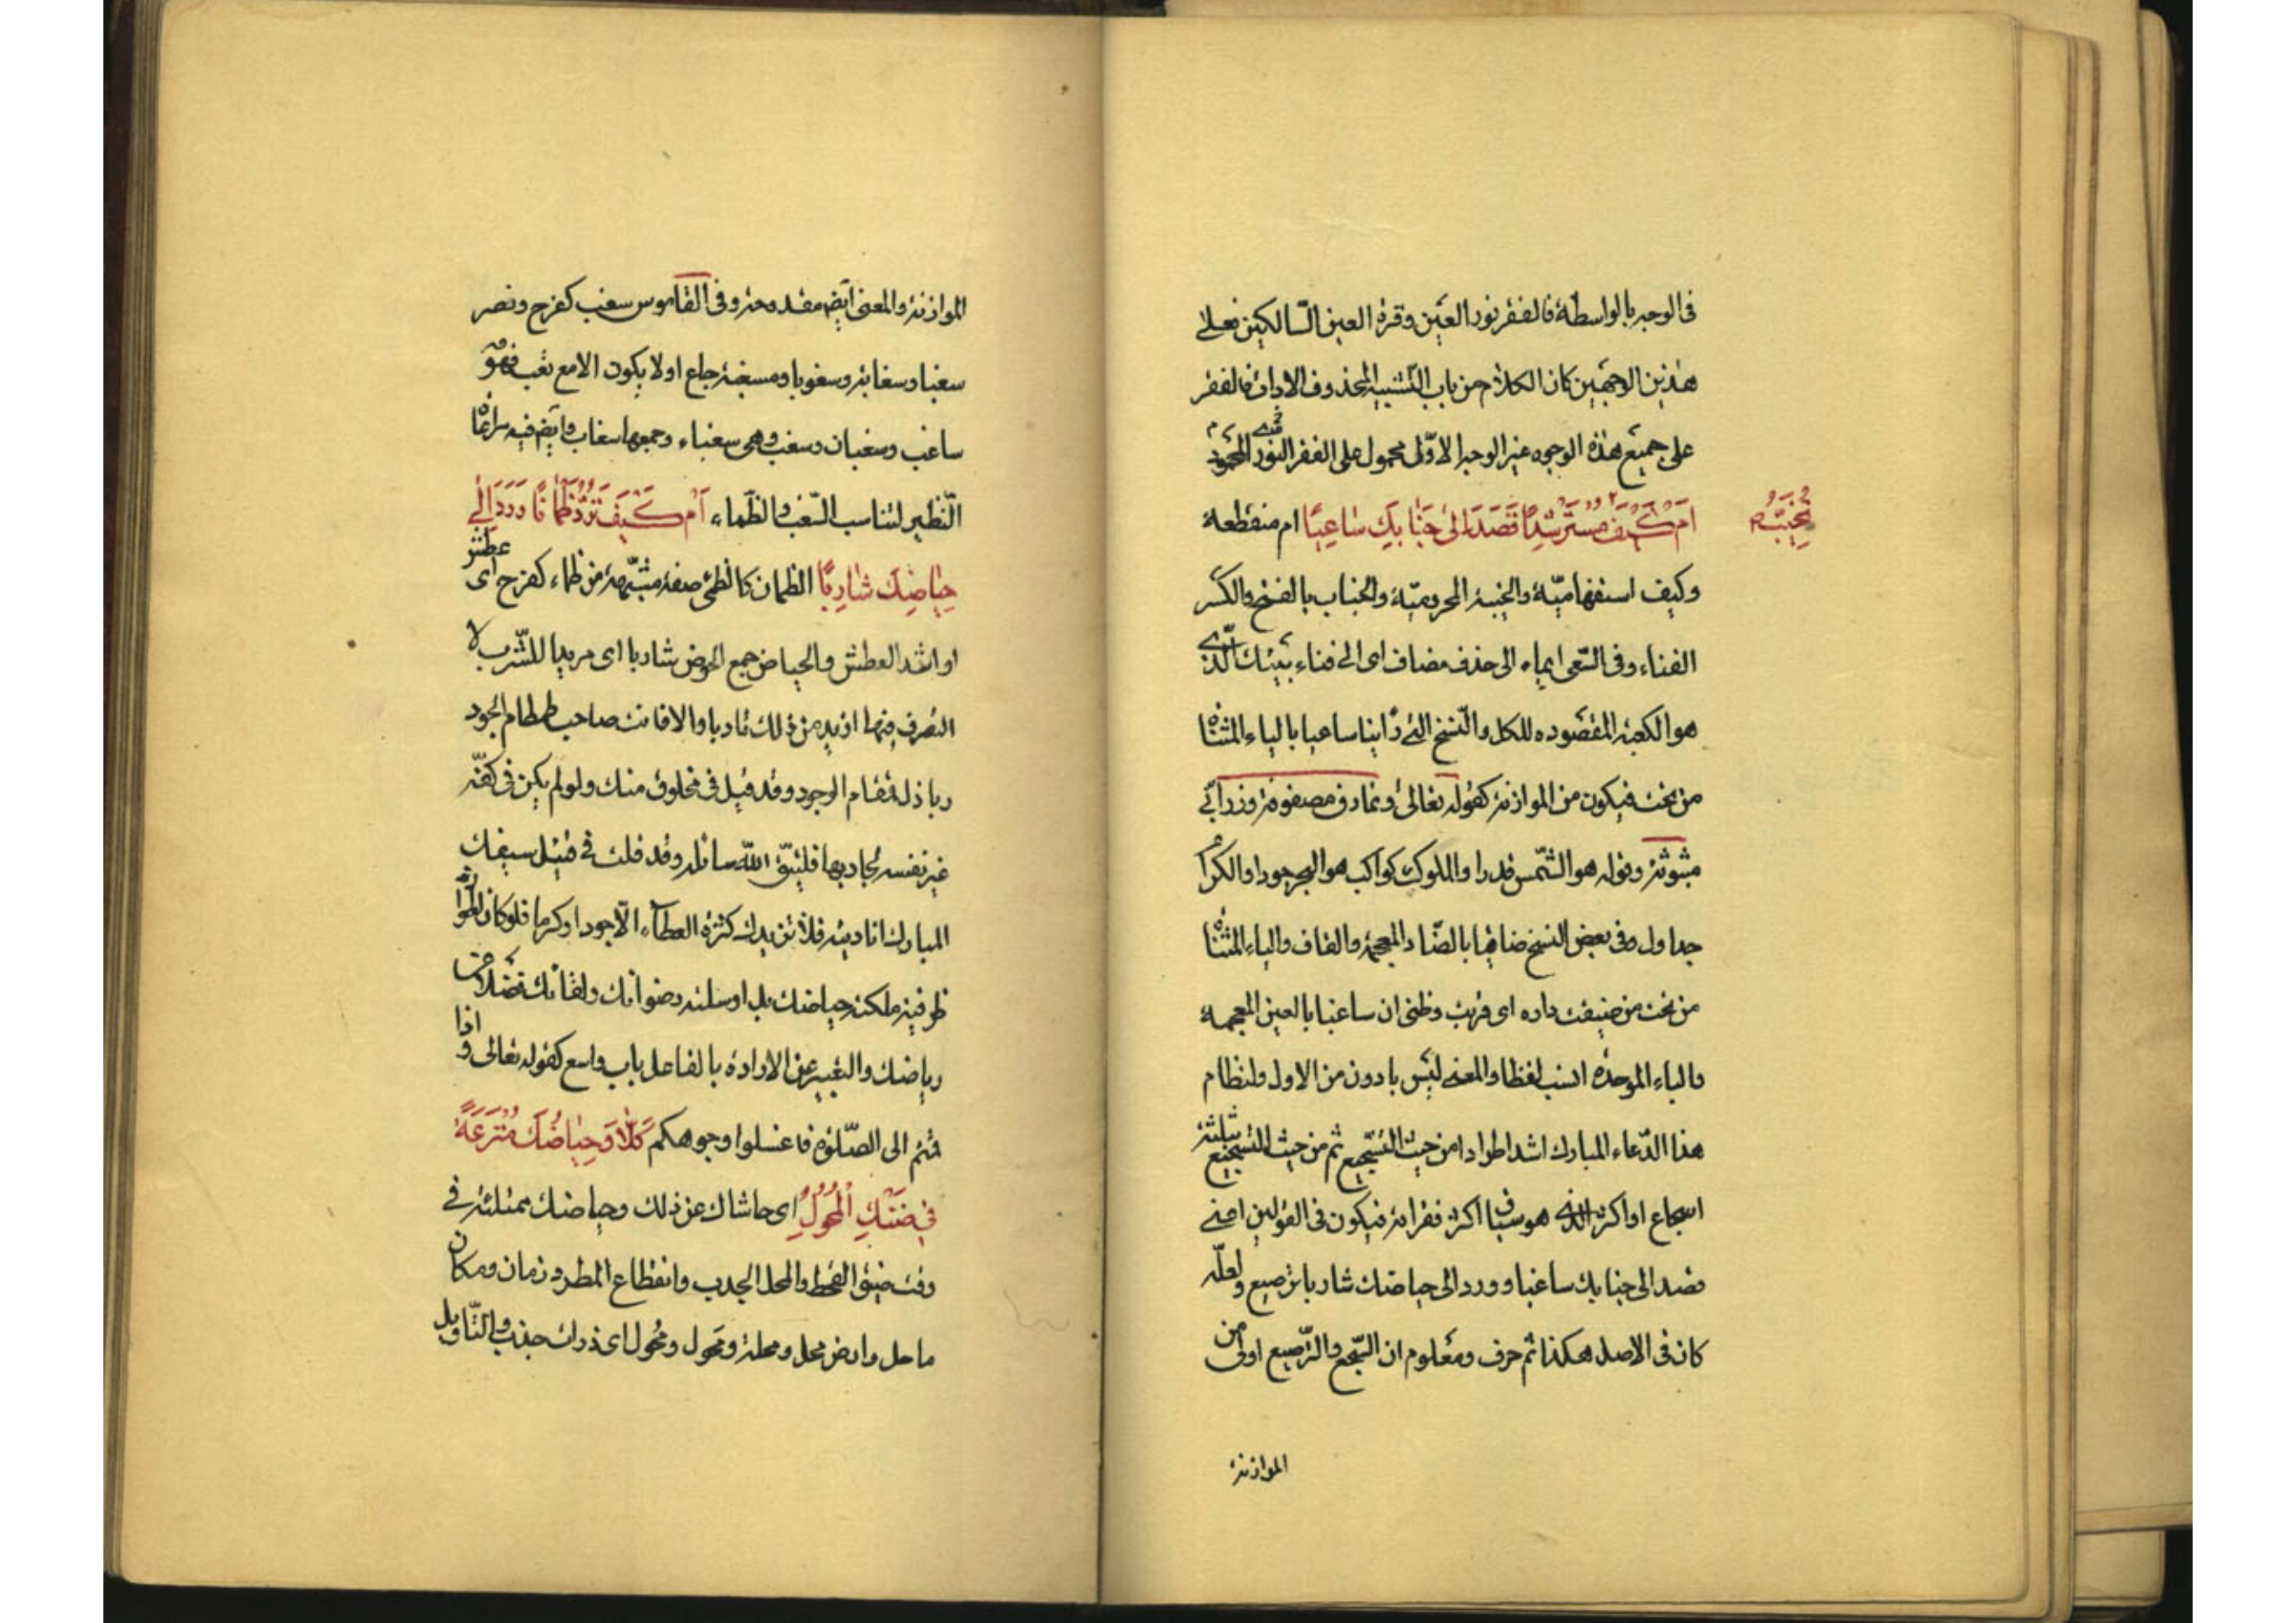 فى الوجه بالواسطة فالفقر نور العين وقرة العين السّالكين فعلى
هذين الوجهين كان الكلام من باب التّشبيه المحذوف الاداة فالفقر
على جميع هذه الوجوه غير الوجه الاوّل محمول على الفقر النور المحمدى
اَمْ كَيْفَ تُخَيِّبُ مُسْتَرْشِدًا قَصَدَ اِلىٰ جَنٰابِكَ سٰاعِيًا ام منقطعة
وكيف استفهاميّة والخيبة المحروميّة والجناب بالفتح والكسر
الفناء وفى السّعى ايماء الى حذف مضاف اى الى فناء بيتك الّذى
هو الكعبة المقصوده للكل والنّسخ التى رأينا ساعيا بالياء المثناة
من تحت فيكون من الموازنة كقوله تعالىٰ ونمارق مصفوفة وزرابىّ
مبثوثة وقوله هو الشّمس قدرا والملوك كواكب هو البحر جودا والكرام
جداول وفى بعض النسخ ضاقيا بالضّاد المعجمة والقاف والياء المثناة
من تحت من ضيفت داره اى قربت وظنى ان ساغبا بالعين المعجمة
والباء الموحدة انسب لفظا والمعنى ليس بادون من الاول ولنظام
هذا الدّعاء المبارك اشد اطرادا من حيث التّسجيع ثم من حيث التسجيع بثلثة
اسجاع او اكثر الذى هو سياق اكثر فقراته فيكون فى القولين اعنى
قصد الى جنابك ساغبا وورد الى حياضك شاربا ترصيع ولعلّه
كان فى الاصل هكذا ثم حرف ومعلوم ان السّجع والتّرصيع اولى من
الموازنة
الموازنة والمعنى ايضا مقدوحة وفى القاموس سغب كفرح ونصر
سغبا وسغابة وسغوبا ومسغبة جاع او لا يكون الا مع تعب فهو
ساغب وسغبان وسغب وهى سغباء وجمعها سغاب وايضا فيه مراعاة
النّظير لتناسب السّغب والظّماء اَمْ كَيْفَ تَرُدُّ ظَمْاٰنًا وَرَدَ اِلىٰ
حِيٰاضِكَ شٰارِبًا الظمان كالظمئ صفة مشبّهة من ظماء كفرح اى عطش
او اشد العطش والحياض جمع الحوض شاربا اى مريدا للشّرب لا
التصرف فيها ازيد من ذلك تادبا والا فانت صاحب طمطام الجود
وباذل قمقام الوجود وقد قيل فى مخلوق منك ولو لم يكن فى كفّه
غير نفسه لجاد بها فليتّق اللّه سائله وقد قلت فى قتيل سيفك
المبارك انا ديته فلا تزيدك كثرة العطاء الّا جودا وكرما فلو كان
ظرفيه ملكته حياضك بل اوسلته رضوانك ولقائك فضلا عن
رياضك والتعبير عن الارادة بالفاعل باب واسع كقوله تعالى واذا
قمتم الى الصّلوة فاغسلوا وجوهكم كَلّاٰ وَحِيٰاضُكَ مُتْرَعَةٌ
فى ضَنْكِ الْمُحُولِ اى حاشاك عن ذلك وحياضك ممتلئة فى
وقت ضيق القحط والمحل الجدب وانقطاع المطر وزمان ومكان
ماحل وارض محل ومحلة ومحول ومحُول اى ذرات جذب والتّاويل
تُخَيِّبُ